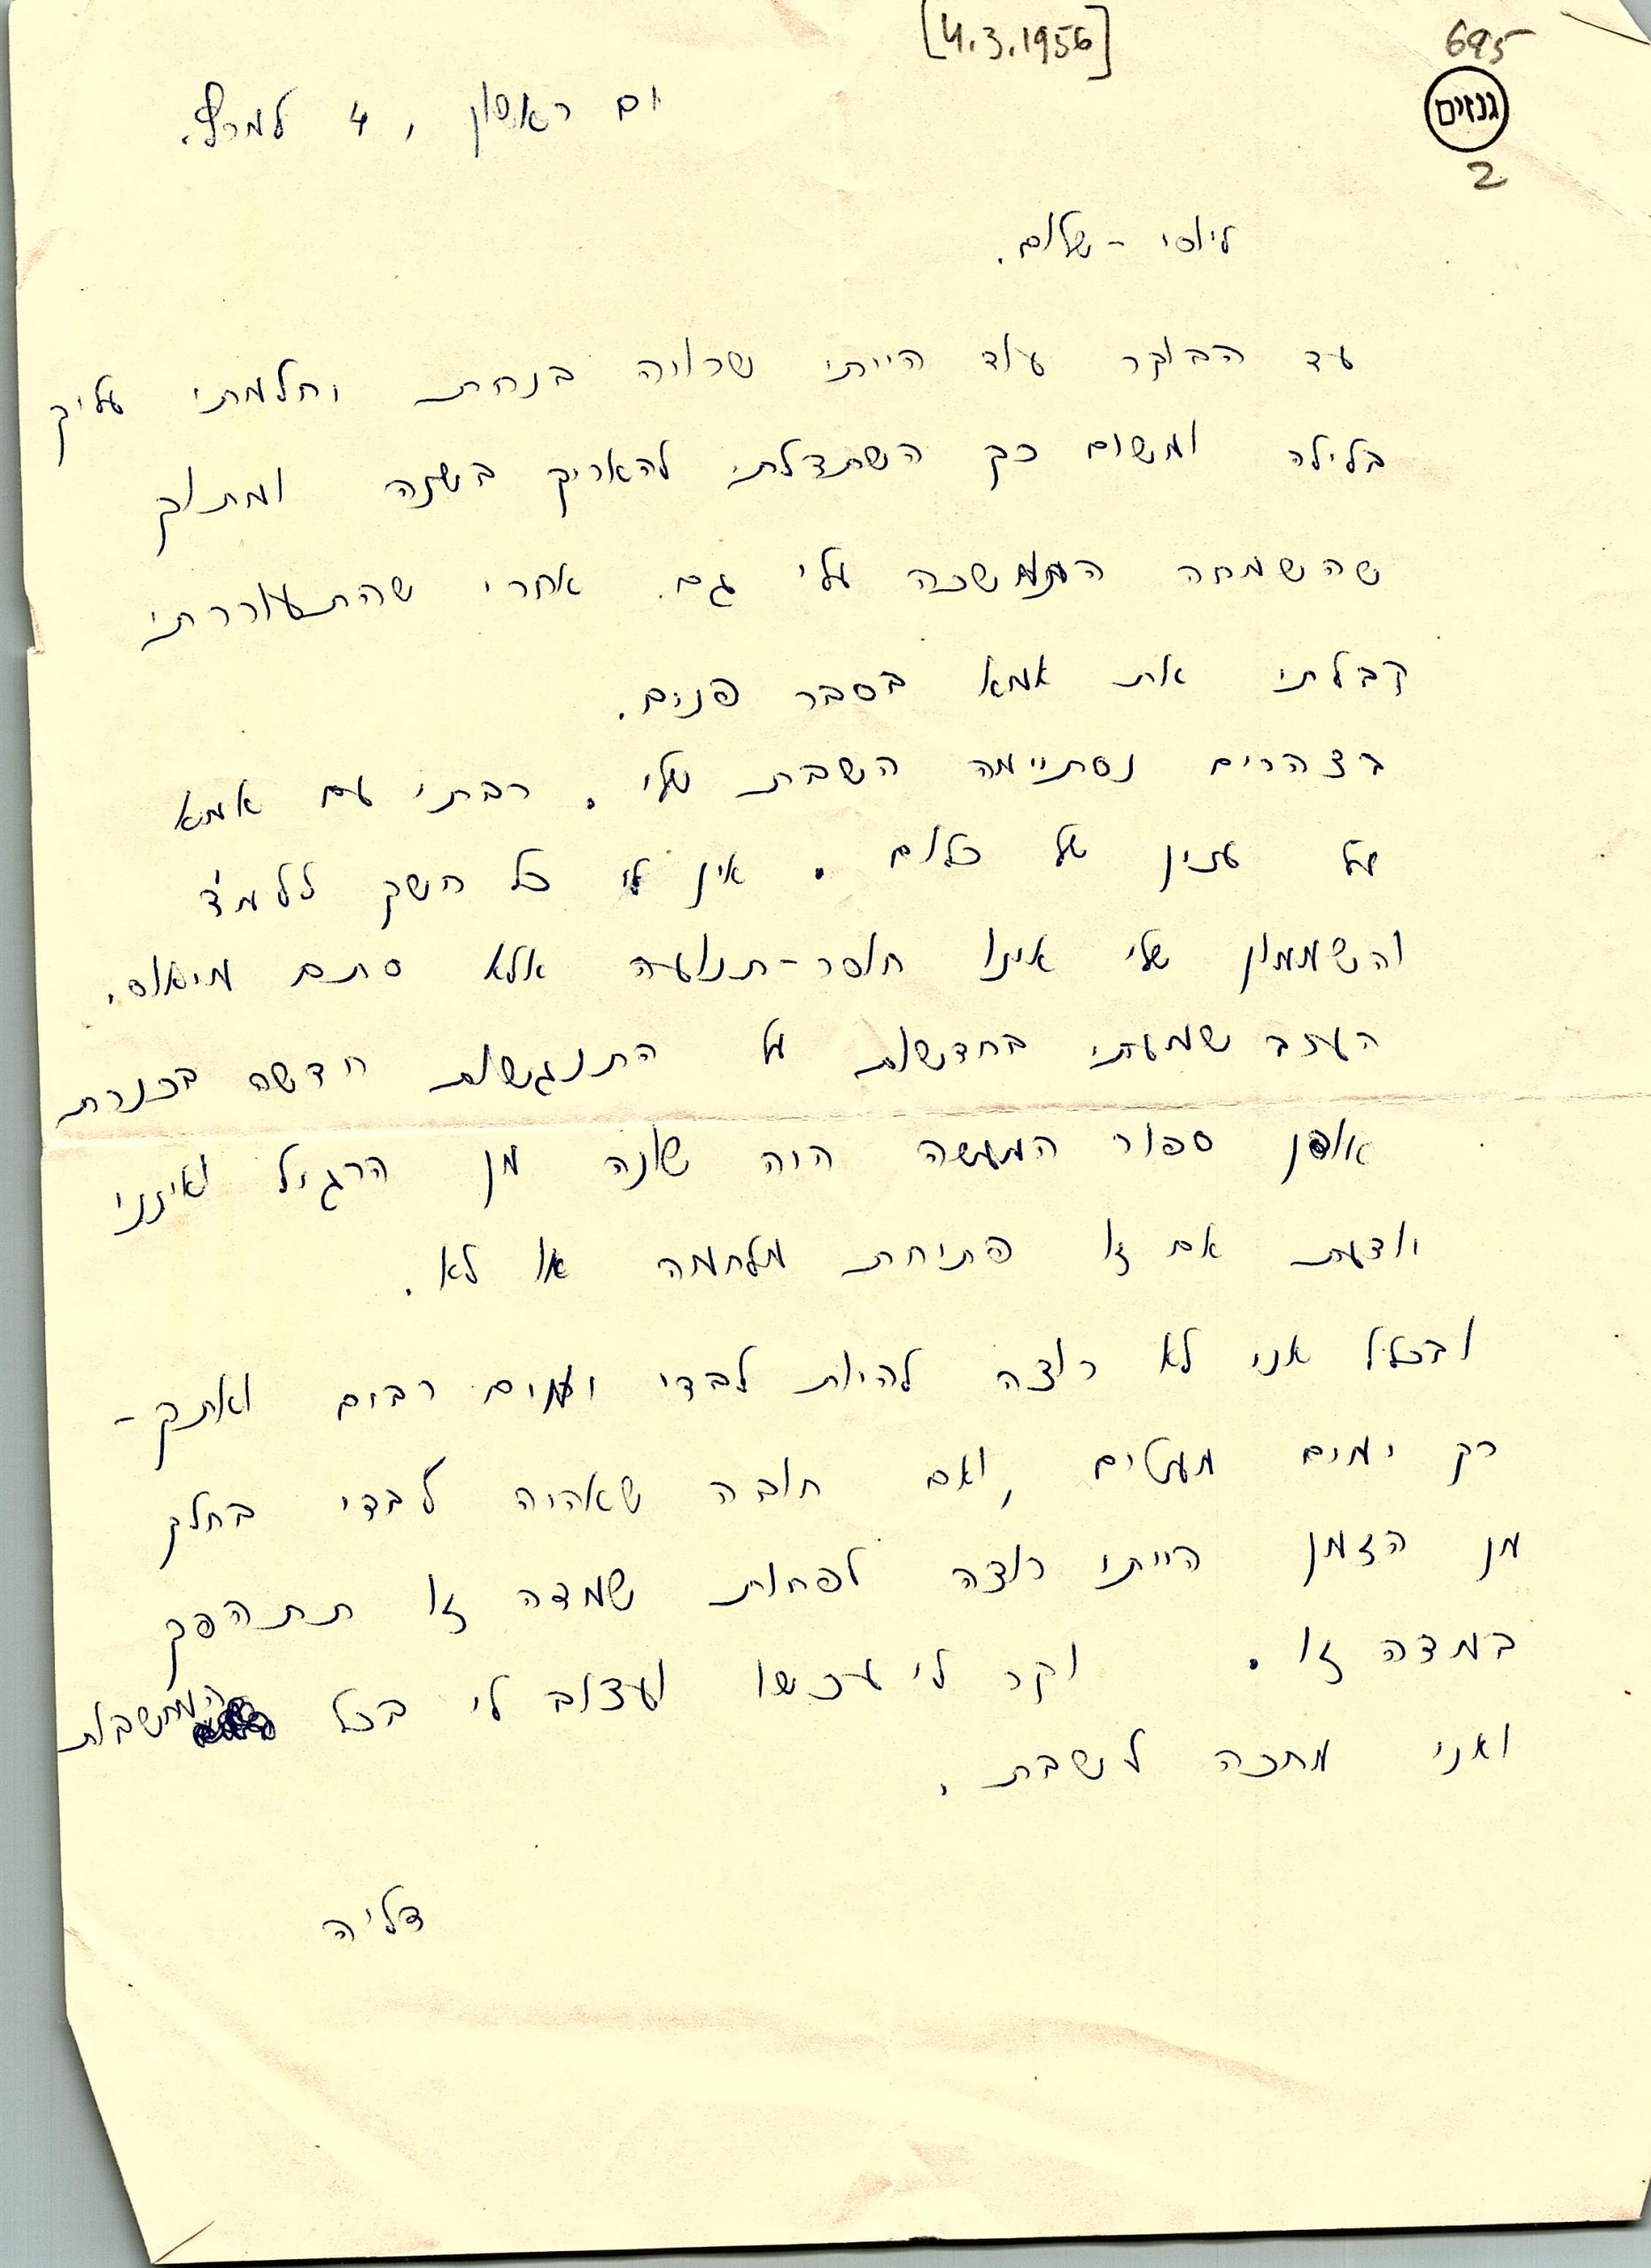 [4.3.1956]
695
גנזים
2
יום ראשון, 4 למרץ.
ליוסי - שלום.
עד הבוקר עוד הייתי שרויה בנחת וחלמתי עליך
בלילה ומשום כך השתדלתי להאריך בשנה ומתוך
שהשמחה התמשכה עלי גם אחרי שהתעוררתי
קבלתי את אמא בסבר פנים.
בצהרים נסתיימה השבת שלי. רבתי עם אמא
על ענין של כלום. אין לי כל חשק ללמד
והשממון שלי אינו חוסר-תנועה אלא סתם מיאוס.
הערב שמעתי בחדשות על התנגשות חדשה בכנרת
אופן ספור המעשה היה שונה מן הרגיל ואינני
יודעת אם זו פתיחת מלחמה או לא.
ובכלל אני לא רוצה להיות לבדי ימים רבים ואתך-
רק ימים מעטים, ואם חובה שאהיה לבדי בחלק
מן הזמן הייתי רוצה לפחות שמדה זו תתהפך
במדה זו. וקר לי עכשו ועצוב לי בכל המחשבות
ואני מחכה לשבת.
דליה